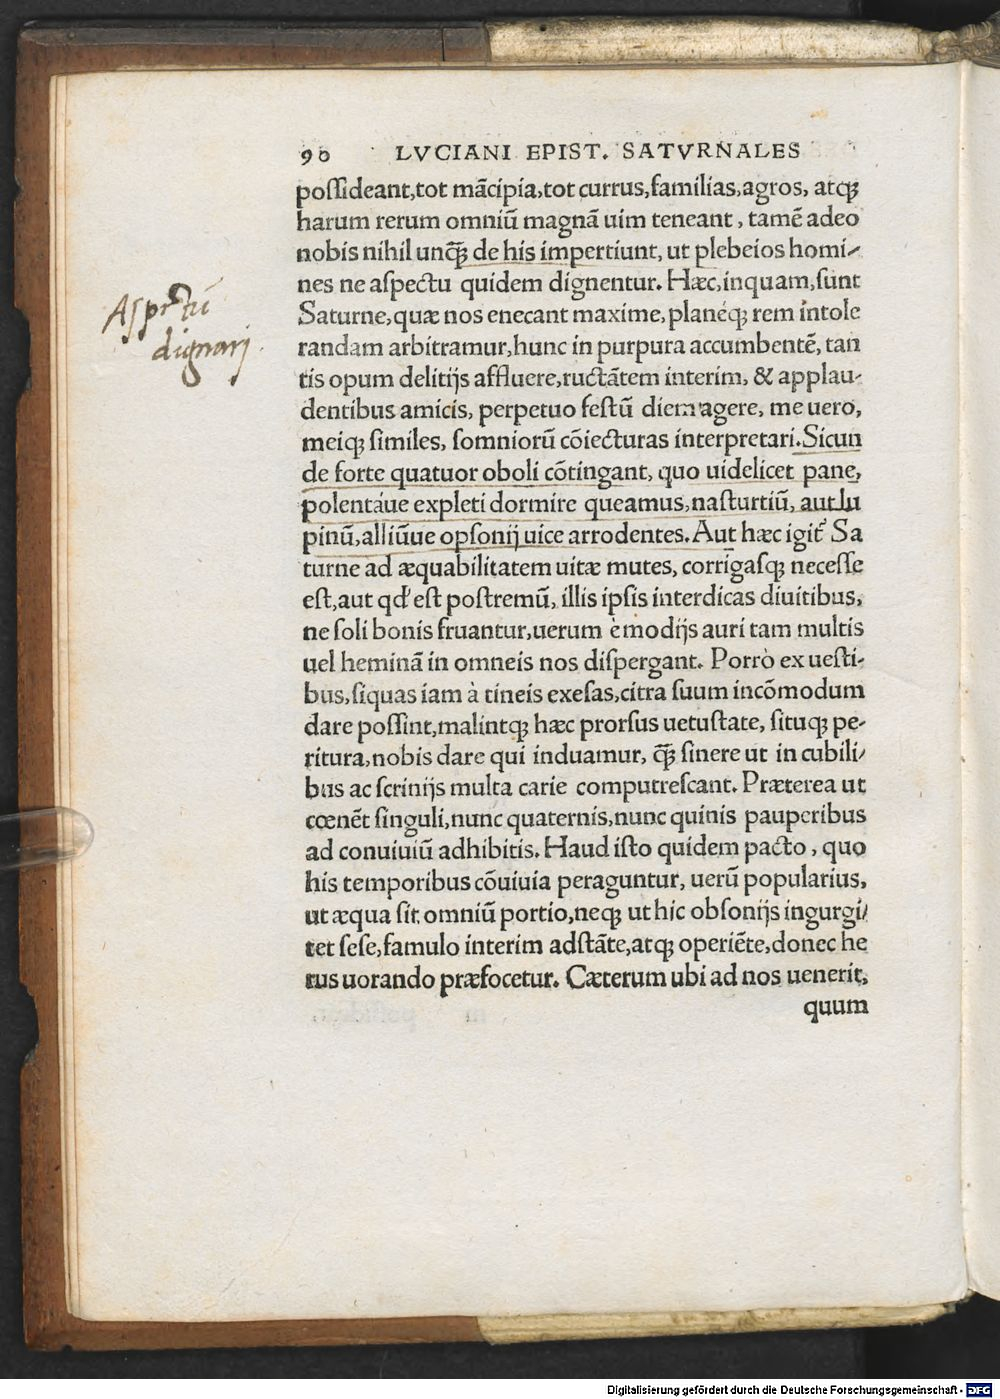 90 LVCIANI EPIST. SATVRNALES
poſſideant,tot mãcipia,tot currus,familias,agros, atqꝫ
harum rerum omniũ magnã uim teneant, tamẽ adeo
nobis nihil unq̃ꝫ de his impertiunt, ut plebeios homi-
nes ne aſpectu quidem dignentur. Hæc,inquam,ſunt
Saturne,quæ nos enecant maxime, planéqꝫ rem intole
randam arbitramur,hunc in purpura accumbentẽ, tan
tis opum delitijs affluere,ructãtem interim, & applau-
dentibus amicis, perpetuo feſtũ diem agere, me uero,
meiqꝫ ſimiles, ſomniorũ cõiecturas interpretari.Sicun
de forte quatuor oboli cõtingant, quo uidelicet pane,
polentáue expleti dormire queamus,naſturtiũ, aut lu
pinũ,alliũue opſonij uice arrodentes. Aut hæc igit̃ Sa
turne ad æquabilitatem uitæ mutes, corrigaſqꝫ neceſſe
eſt,aut qď eſt poſtremũ, illis ipſis interdicas diuitibus,
ne ſoli bonis fruantur,uerum è modijs auri tam multis
uel heminã in omneis nos diſpergant. Porrò ex ueſti-
bus,ſiquas iam à tineis exeſas,citra ſuum incõmodum
dare poſſint,malintqꝫ hæc prorſus uetuſtate, ſituqꝫ pe-
ritura,nobis dare qui induamur, q̃ꝫ ſinere ut in cubili-
bus ac ſcrinijs multa carie computreſcant. Præterea ut
cœnẽt ſinguli,nunc quaternis,nunc quinis pauperibus
ad conuiuiũ adhibitis. Haud iſto quidem pacto, quo
his temporibus cõuiuia peraguntur, uerũ popularius,
ut æqua ſit omniũ portio,neqꝫ ut hic obſonijs ingurgi-
tet ſeſe,famulo interim adſtãte,atqꝫ operiẽte,donec he
rus uorando præfocetur. Cæterum ubi ad nos uenerit,
quum
Aſpectũ
dignarj.
Digitalisierung gefördert durch die Deutsche Forschungsgemeinschaft - DFG